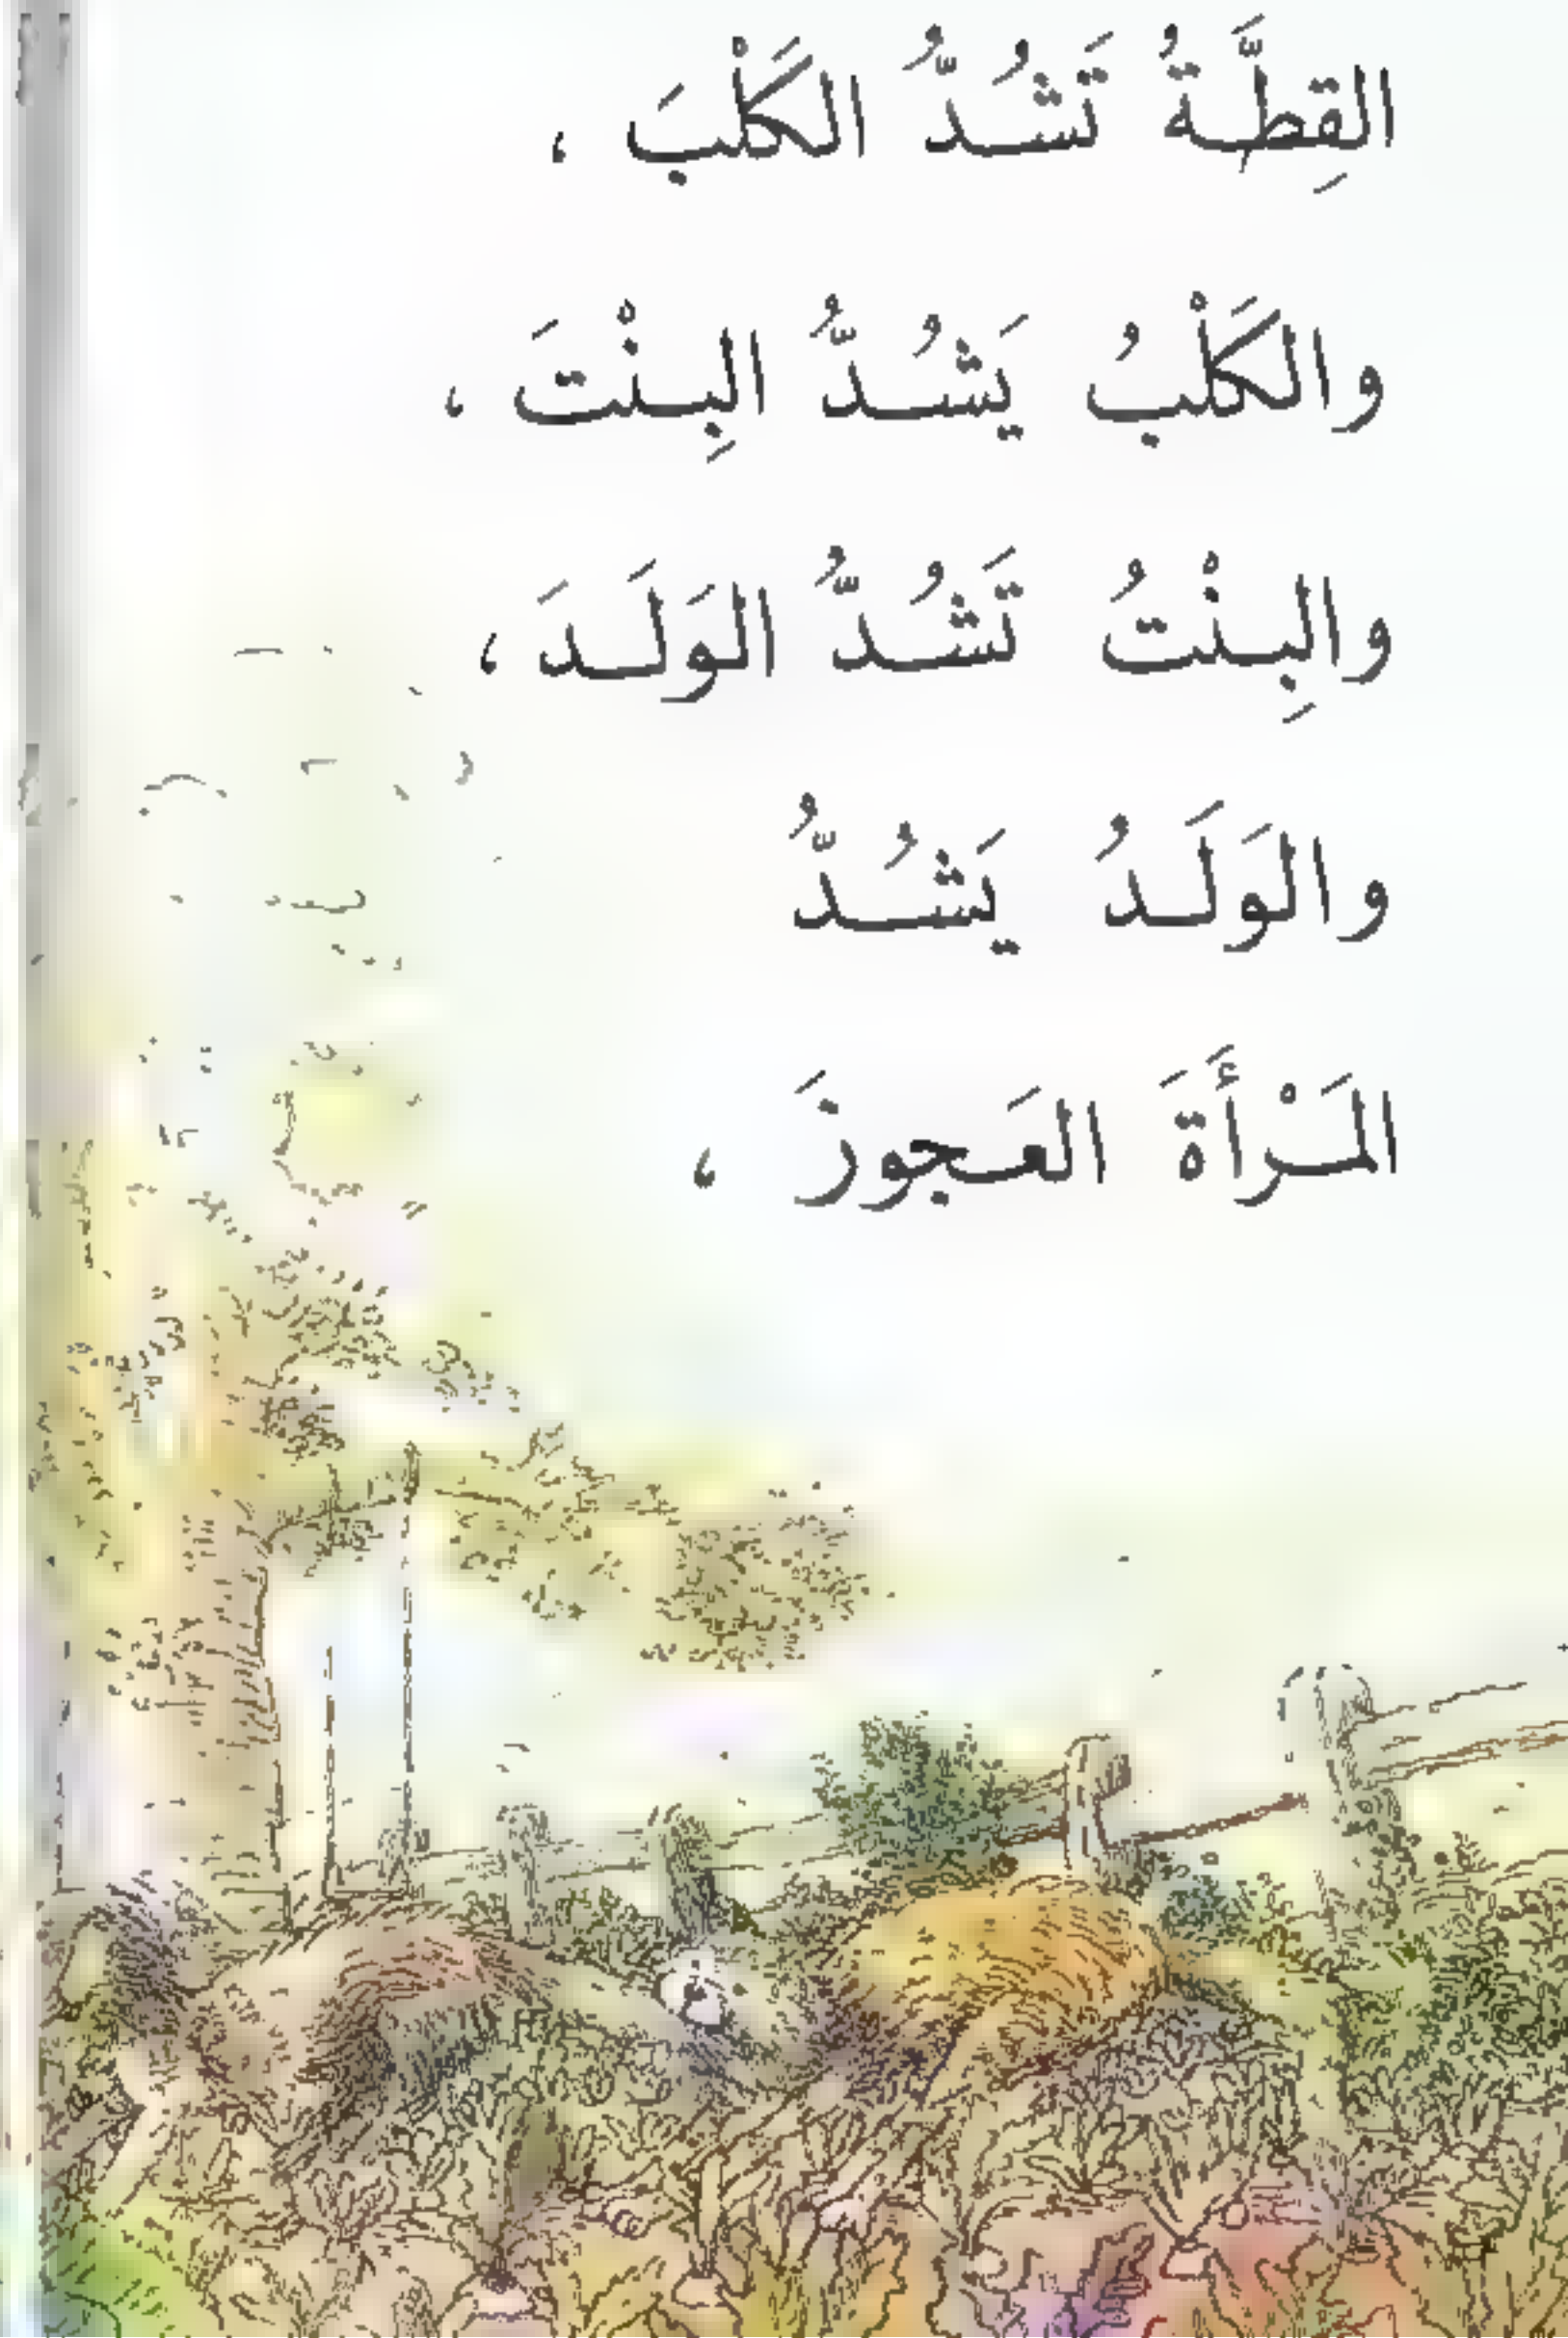 القِطَّةُ تَشُدُّ الكَلْبَ ،
والكَلْبُ يَشُدُّ البِنْتَ ،
والبِنْتُ تَشُدُّ الوَلَدَ ،
والوَلَدُ يَشُدُّ
المَرْأَةَ العَجوزَ ،